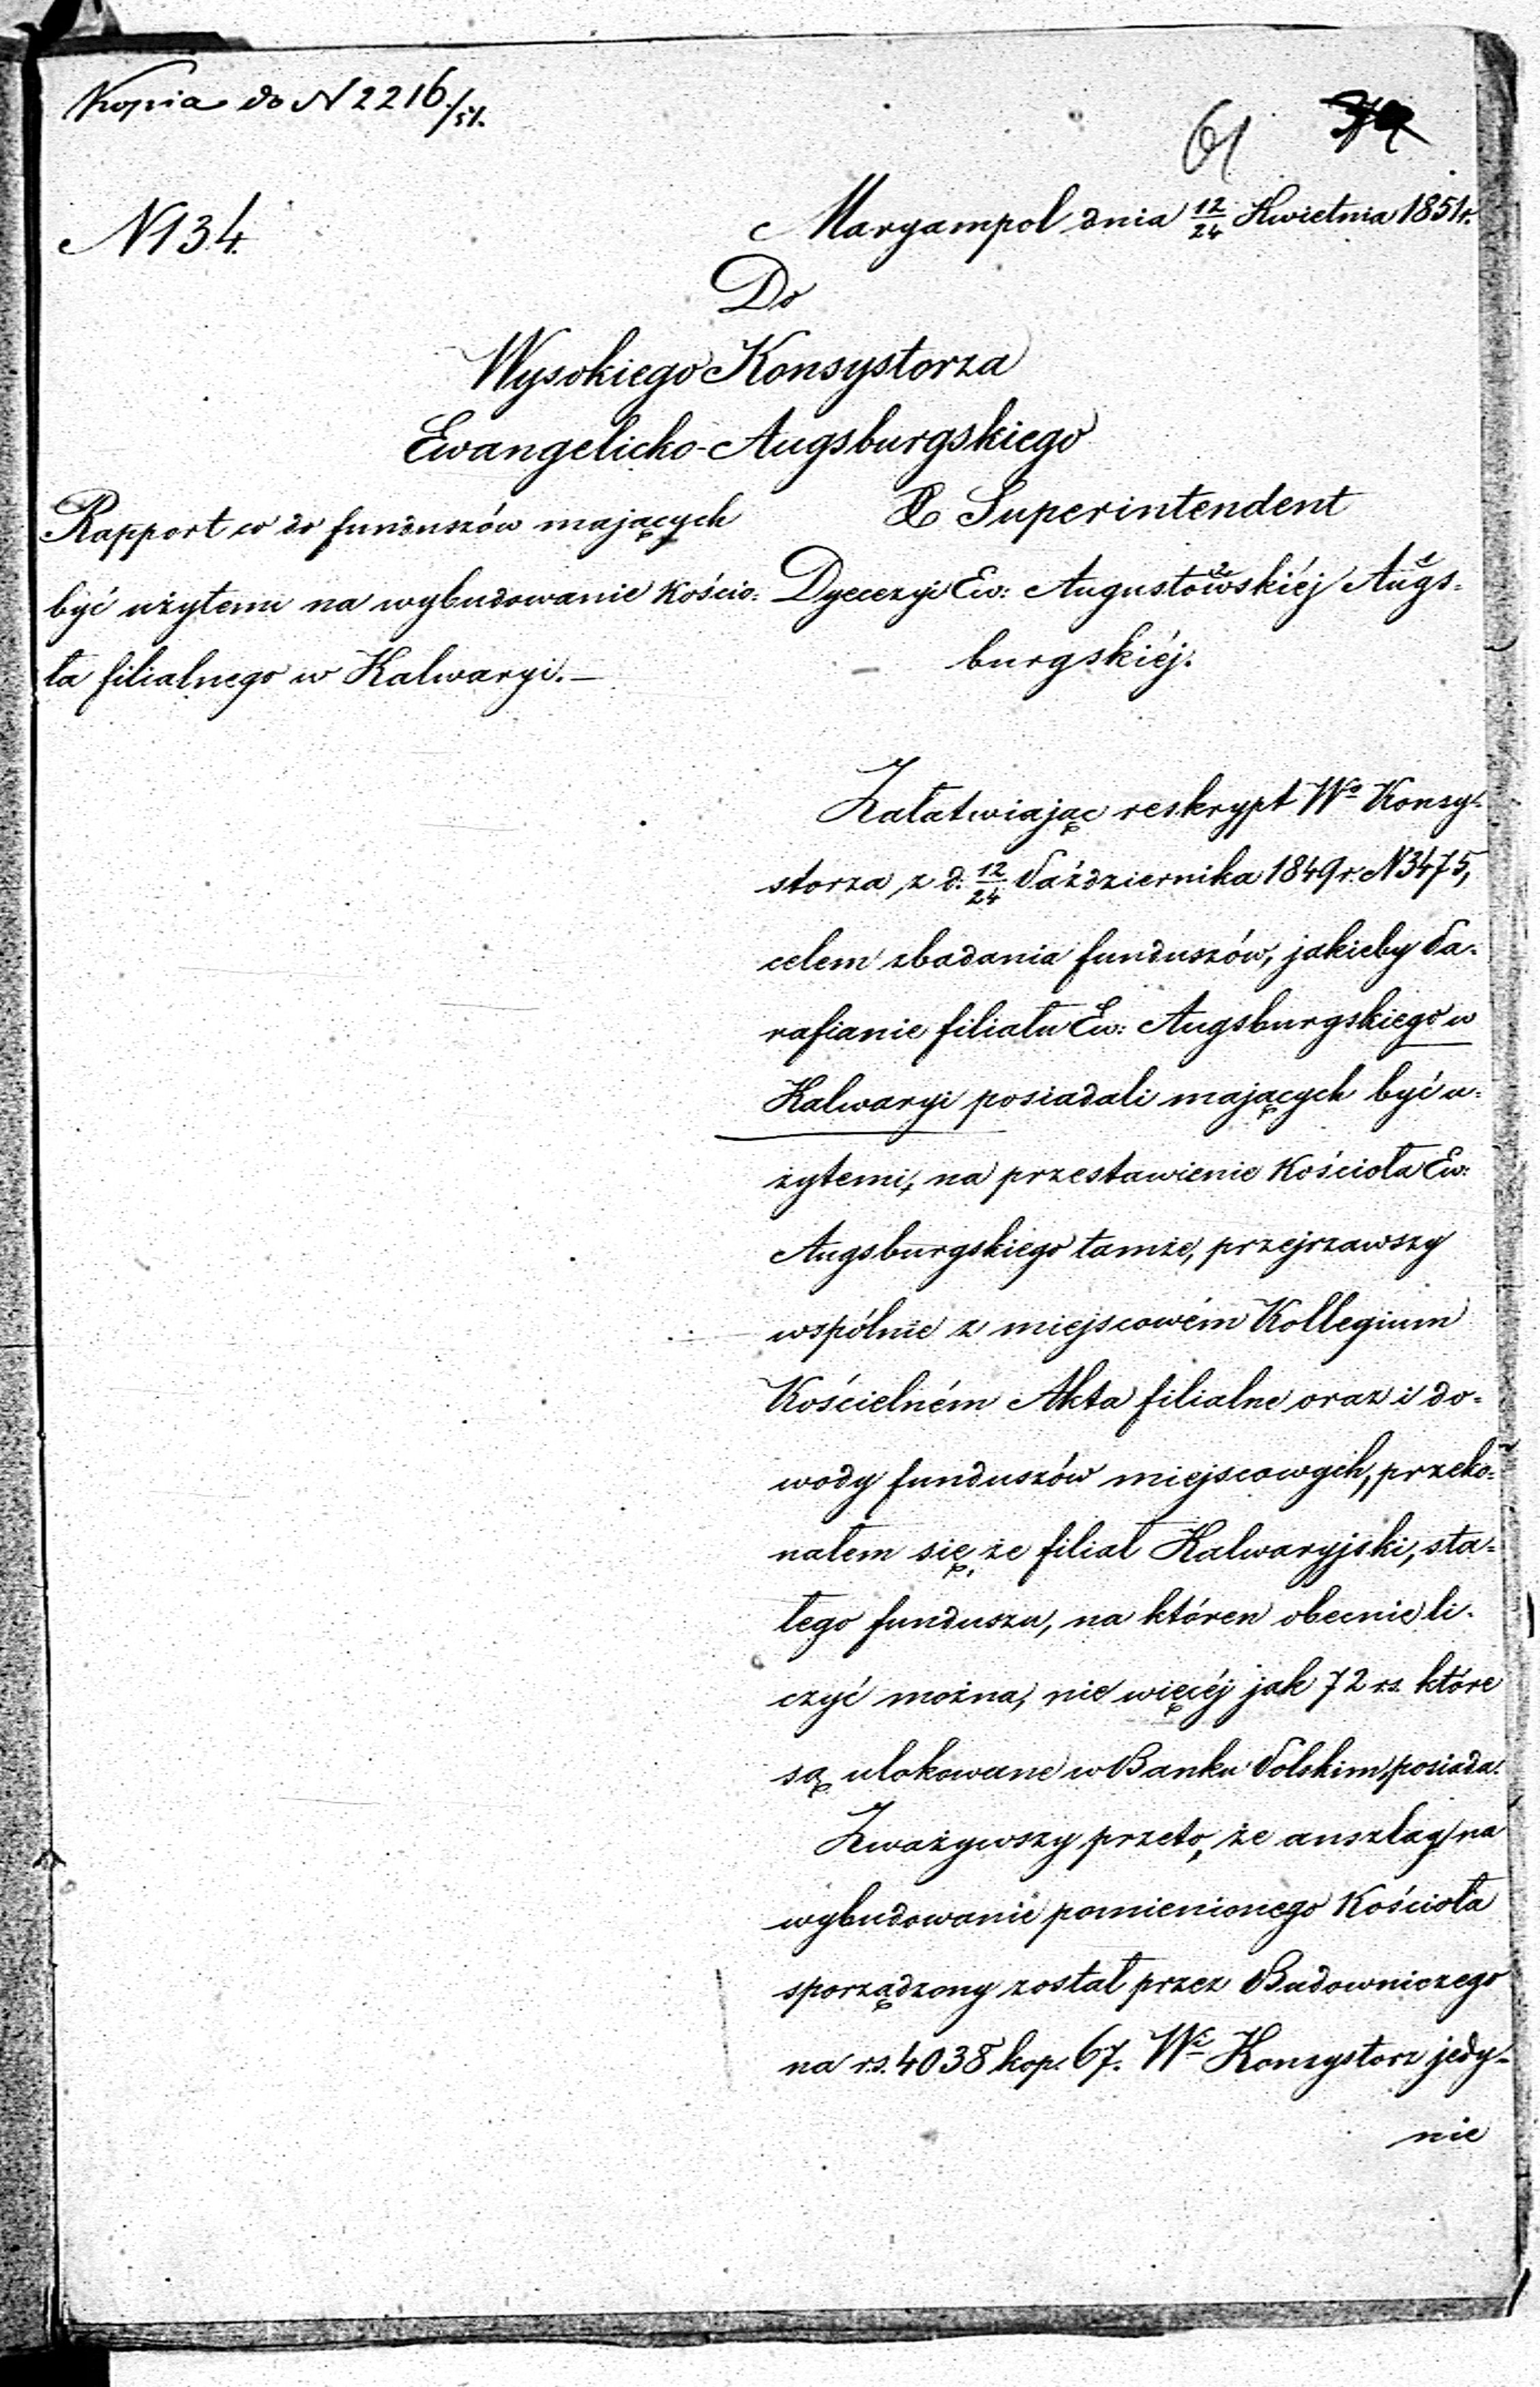 Kopia do N 2216/51.
61
N 134.
Maryampol dnia 12/24 Kwietnia 1851 r.
Do
Wysokiego Konsystorza
Ewangelicko-Augsburgskiego
Rapport co do funduszów mających
być użytemi na wybudowanie Kościo-
ła filialnego w Kalwaryi. —
Superintendent
Dyecezyi Ew: Augustowskiéj Augs-
burgskiéj.
Załatwiając reskrypt Wo Konsy-
storza z d. 12/24 Października 1849 r. N 3475,
celem zbadania funduszów, jakieby Pa-
rafianie filiału Ew: Augsburgskiego w
Kalwaryi posiadali mających być u-
żytemi, na przestawienie Kościoła Ew:
Augsburgskiego tamże, przejrzawszy
wspólnie z miejscowém Kollegium
Kościelném Akta filialne oraz i do-
wody funduszów miejscowych, przeko-
nałem się, że filiał Kalwaryjski, sta-
łego funduszu, na któren obecnie li-
czyć można, nie więcéj jak 72 rs. które
są ulokowane w Banku Polskim, posiada.
Zważywszy przeto, że anszlag na
wybudowanie pomienionego Kościoła
sporządzony został przez Budowniczego
na rs. 4038 kop. 67. Wi Konsystorz jedy-
nie